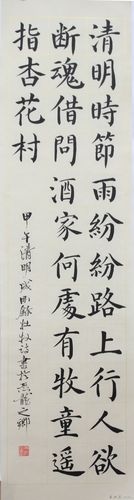 清明時節雨紛紛路上行人欲
断魂借問酒家何處有牧童遥
指杏花村
甲午清明杜牧诗書於龍之鄉